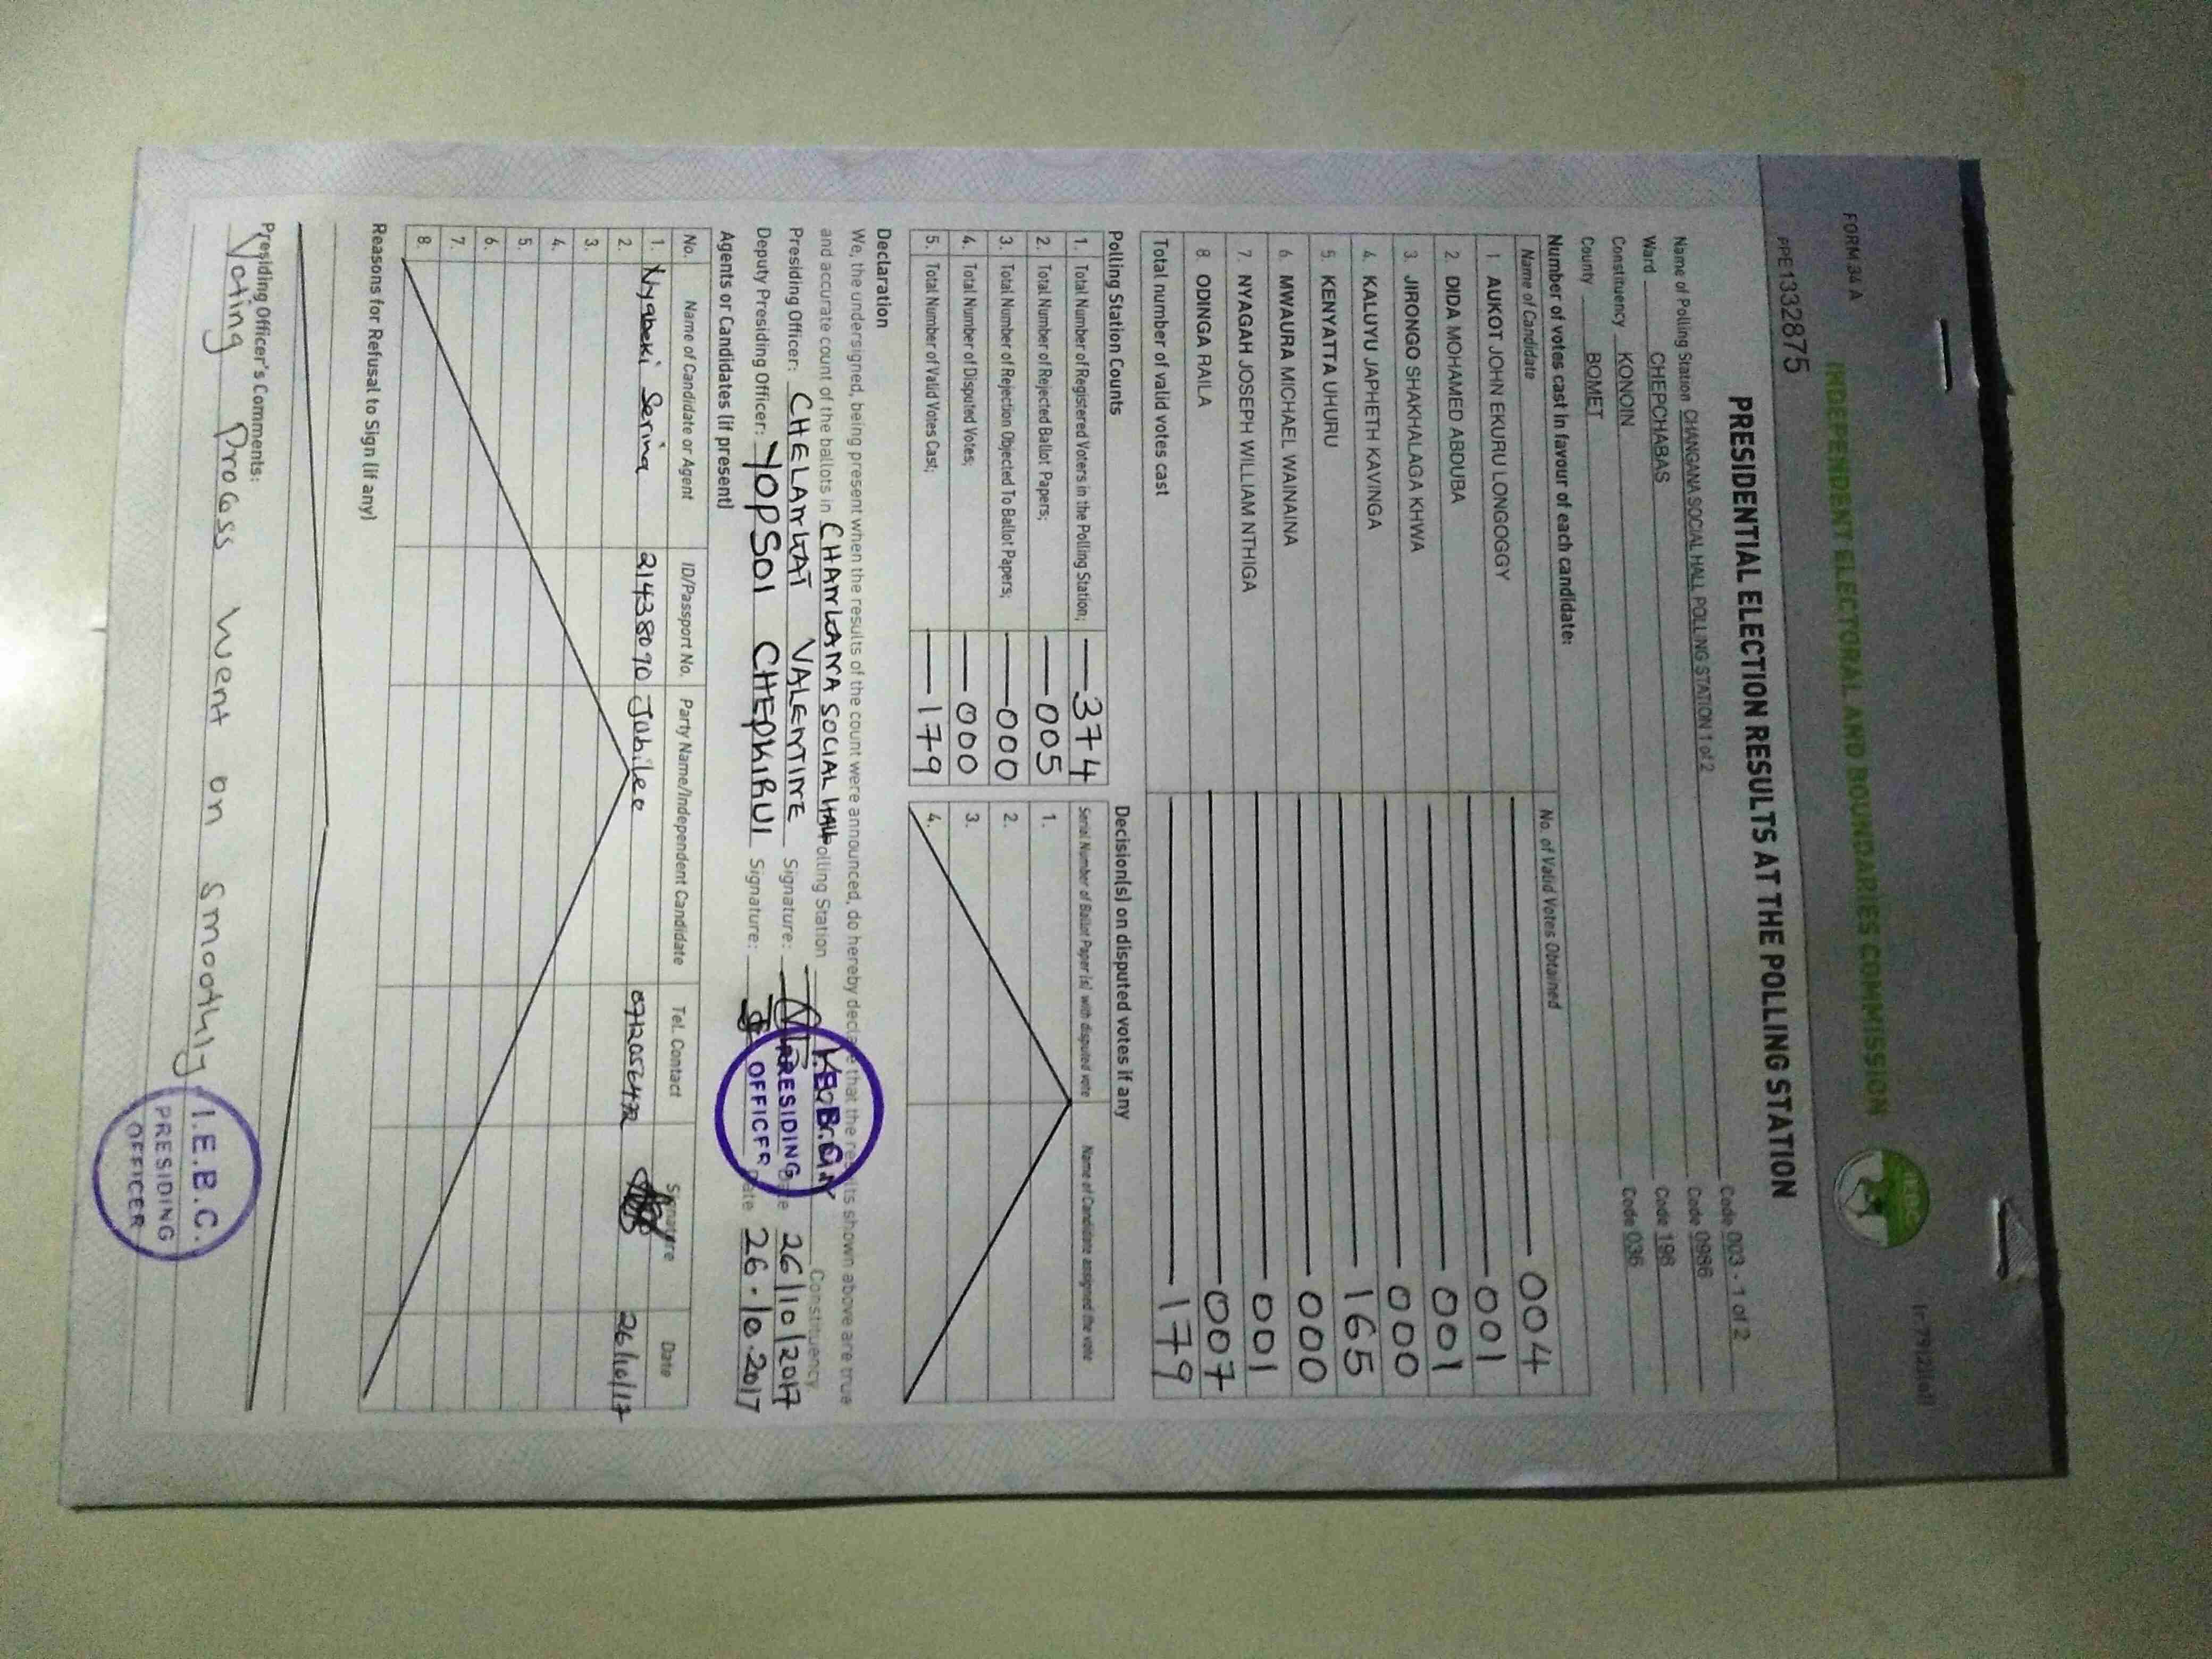 FORM 34 A
INDEPENDENT ELECTORAL AND BOUNDARIES COMMISSION
PPE1332875
PRESIDENTIAL ELECTION RESULTS AT THE POLLING STATION
Name of Polling Station CHANGANA SOCIAL HALL POLLING STATION 1 of 2 Code 003 - 1 of 2
Ward CHEPCHABAS Code 0986
Constituency KONOIN Code 198
County BOMET Code 036
Number of votes cast in favour of each candidate:
Name of Candidate No. of Valid Votes Obtained
1. AUKOT JOHN EKURU LONGOGGY 004
2. DIDA MOHAMED ABDUBA 001
3. JIRONGO SHAKHALAGA KHWA 001
4. KALUYU JAPHETH KAVINGA 000
5. KENYATTA UHURU 165
6. MWAURA MICHAEL WAINAINA 000
7. NYAGAH JOSEPH WILLIAM NTHIGA 001
8. ODINGA RAILA 007
Total number of valid votes cast 179
Polling Station Counts
1. Total Number of Registered Voters in the Polling Station; 374
2. Total Number of Rejected Ballot Papers; 005
3. Total Number of Rejection Objected To Ballot Papers; 000
4. Total Number of Disputed Votes; 000
5. Total Number of Valid Votes Cast; 179
Decision(s) on disputed votes if any
Serial Number of Ballot Paper (s) with disputed vote Name of Candidate assigned the vote
1.
2.
3.
4.
Declaration
We, the undersigned, being present when the results of the count were announced, do hereby declare that the results shown above are true
and accurate count of the ballots in CHANGANA SOCIAL HALL Polling Station Constituency
Presiding Officer: CHELANGAT VALENTINE Signature: Date 26/10/2017
Deputy Presiding Officer: YOPSOI CHEPKIRUI Signature: Date 26.10.2017
PRESIDING
OFFICER
Agents or Candidates (if present)
No. Name of Candidate or Agent ID/Passport No. Party Name/Independent Candidate Tel. Contact Signature Date
1. Nyabeki Serina 21438090 Jubilee 26/10/17
2.
3.
4.
5.
6.
7.
8.
Reasons for Refusal to Sign (if any)
Presiding Officer's Comments:
Voting Process went on smoothly
I.E.B.C.
PRESIDING
OFFICER